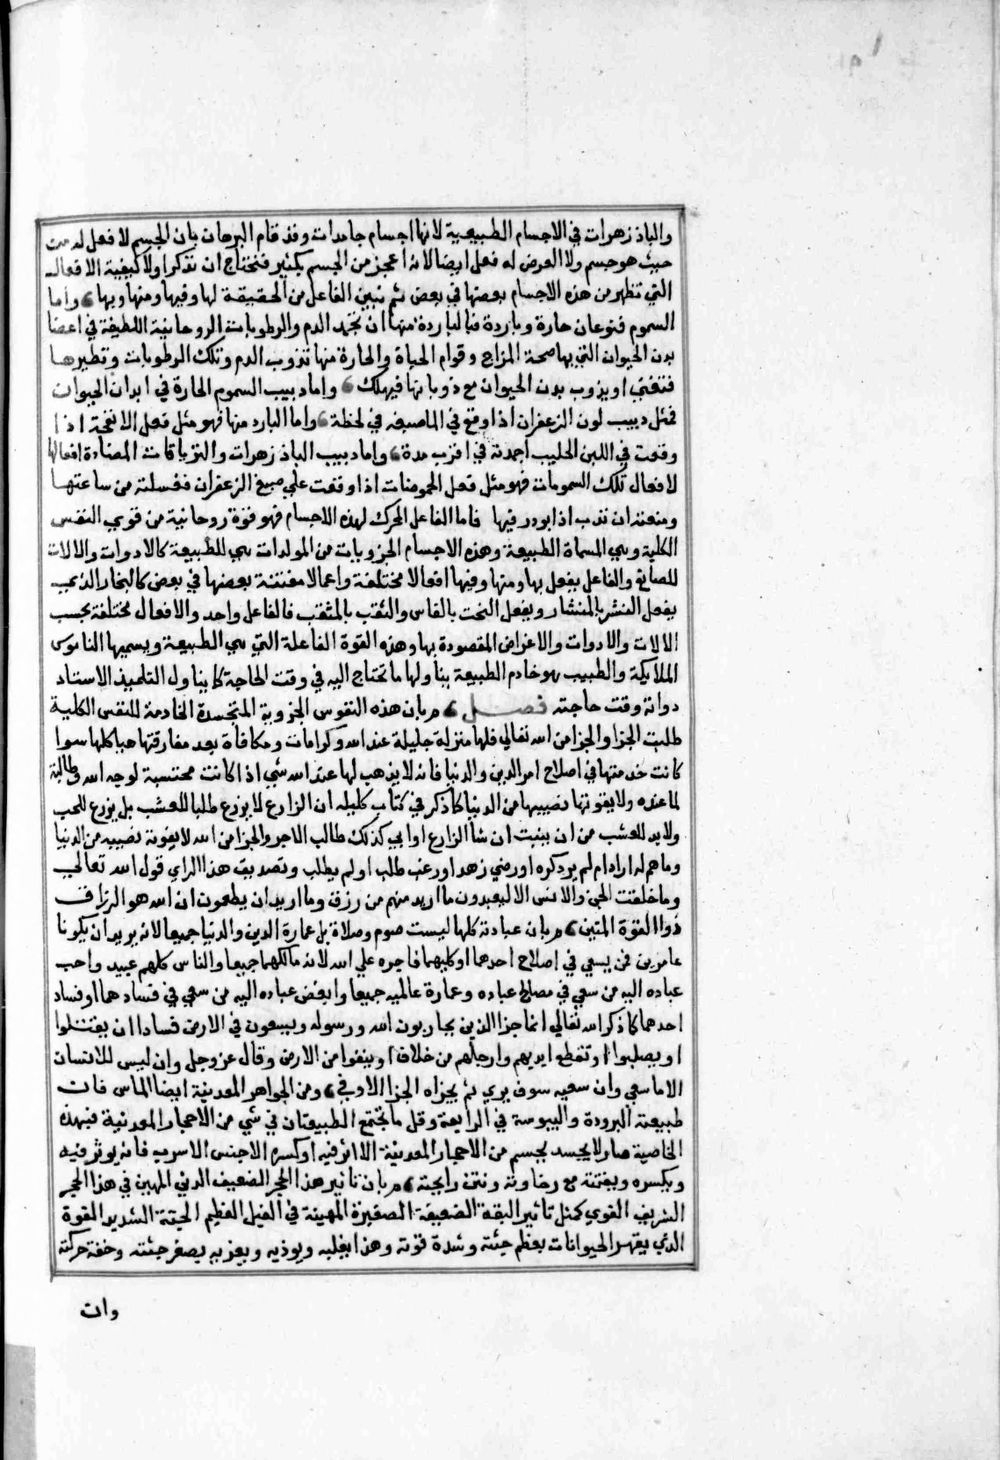 والباذ زهرات في الاجسام الطبيعية لانها اجسام جامدات وقد قام البرهان بان الجسم لا فعل له من
حيث هو جسم ولا العرض له فعل ايضا لانه اعجز من الجسم بكثير فنحتاج ان نذكر اولا كيفية الافعال
التي تظهر من هذه الاجسام بعضها في بعض ثم نبين الفاعل من الحقيقة لها وفيها ومنها وبها واما
السموم فنوعان حارة وباردة فالباردة منها ان تجمد الدم والرطوبات الروحانية اللطيفة في اعضا
بدن الحيوان التي بها صحة المزاج وقوام الحياة والحارة منها تذوب الدم وتلك الرطوبات وتطيرها
فتفني او يذوب بدن الحيوان مع ذوبانها فيهلك واما دبيب السموم الحارة في ابدان الحيوان
فمثل دبيب لون الزعفران اذا وقع في الما صبغه في لحظة واما البارد منها فهو مثل فعل الانفحة اذا
وقعت في اللبن الحليب اجمدته في اقرب مدة واما دبيب الباذ زهرات والترياقات المضادة افعالها
لافعال تلك السمومات فهو مثل فعل الحموضات اذا وقعت علي صبغ الزعفران فغسلته من ساعتها
ومنعته ان تدب اذا بودر فيها فاما الفاعل المحرك لهذه الاجسام فهو قوة روحانية من قوي النفس
الكلية وهي المسماة الطبيعة وهذه الاجسام الجزويات من المولدات هي للطبيعة كالادوات والالات
للصانع والفاعل يفعل بها ومنها وفيها افعالا مختلفة واعمالا مفتنة بعضها في بعض كالنجار الذي
يفعل النشر بالمنشار ويفعل النحت بالفاس والثقب بالمثقب فالفاعل واحد والافعال مختلفة بحسب
الالات والادوات والاغراض المقصودة بها وهذه القوة الفاعلة التي هي الطبيعة ويسميها الناموس
الملايكة والطبيب هو خادم الطبيعة يناولها ما تحتاج اليه في وقت الحاجة كما يناول التلميذ الاستاد
دواته وقت حاجته فصل بان هذه النفوس الجزوية المتجسدة الخادمة للنفس الكلية
طلبت الجزا والجزا من الله تعالي فلها منزلة جليلة عند الله وكرامات ومكافاة بعد مفارقتها هياكلها سوا
كانت خدمتها في اصلاح امر الدين والدنيا فانه لا يذهب لها عند الله شي اذا كانت محتسبة لوجه الله وطالبة
لما عنده ولا يفوتها نصيبها من الدنيا كما ذكر في كتاب كليله ان الزارع لا يزرع طلبا للعشب بل يزرع للحب
ولا بد للعشب من ان ينبت ان شا الزارع او ابي كذلك طالب الاجر والجزا من الله لا يفوته نصيبه من الدنيا
وما هم له اراد ام لم يرد كره او رضي زهد او رغب طلب او لم يطلب وتصديق هذا الراي قول الله تعالي
وما خلقت الجن والانس الا ليعبدون ما اريد منهم من رزق وما اريد ان يطعمون ان الله هو الرزاق
ذوا القوة المتين بان عبادته كلها ليست صوم وصلاة بل عمارة الدين والدنيا جميعا لانه يريد ان يكونا
عامرين فمن يسعي في اصلاح احدهما او كليهما فاجره علي الله لانه مالكهما جميعا والناس كلهم عبيد واحب
عباده اليه من سعي في مصالح عباده وعمارة عالميه جميعا وابغض عباده اليه من سعي في فسادهما او فساد
احدهما كما ذكر الله تعالي انما جزا الذين يحاربون الله ورسوله ويسعون في الارض فسادا ان يقتلوا
او يصلبوا او تقطع ايديهم وارجلهم من خلاف او ينفوا من الارض وقال عز وجل وان ليس للانسان
الا ما سعي وان سعيه سوف يري ثم يجزاه الجزا الاوفي ومن الجواهر المعدنية ايضا الماس فان
طبيعته البرودة واليبوسة في الرابعة وقل ما تجتمع الطبيعتان في شي من الاحجار المعدنية فبهذه
الخاصية صار لا يحسد بجسم من الاحجار المعدنية الا اثر فيه او كسره الا جنس الاسرب فانه يوثر فيه
ويكسره ويفتته مع رخاوته ونتن رايحته بان تاثير هذا الحجر الضعيف الدني المهين في هذا الحجر
الشريف القوي كمثل تاثير البقة الضعيفة الصغيرة المهينة في الفيل العظيم الجثة الشديد القوة
الذي يقهر الحيوانات بعظم جثته وشدة قوته وهذا يغلبه ويوذيه ويعذبه بصغر جثته وخفة حركته
وان